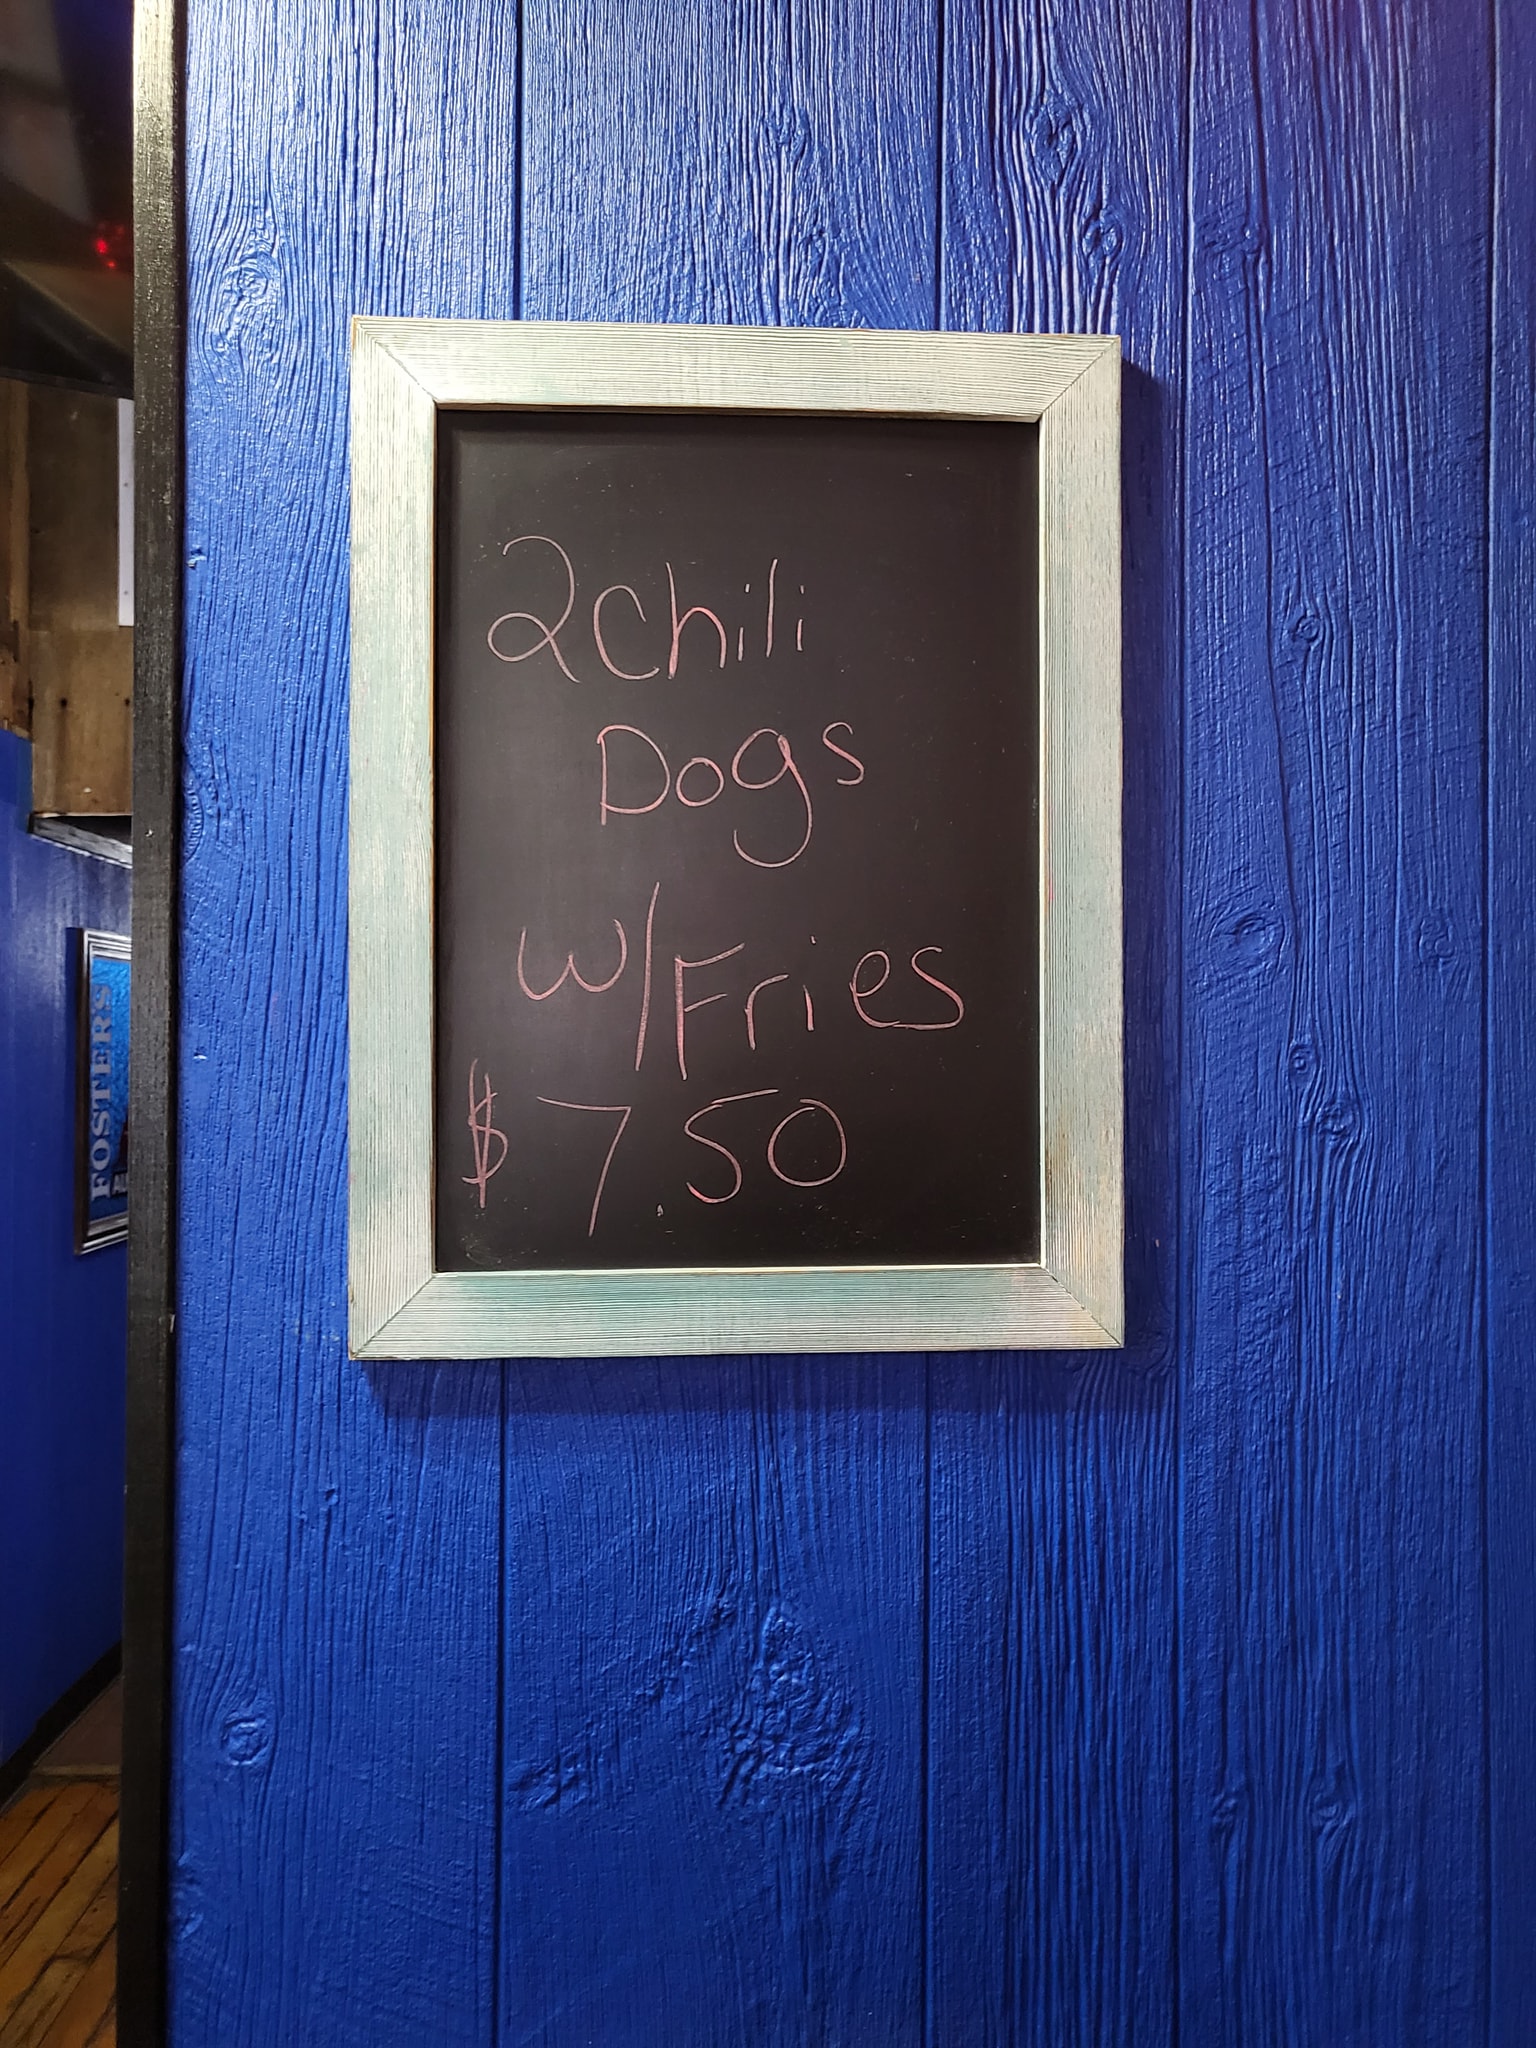 2 Chili
Dogs
w/Fries
$7.50
FOSTERS